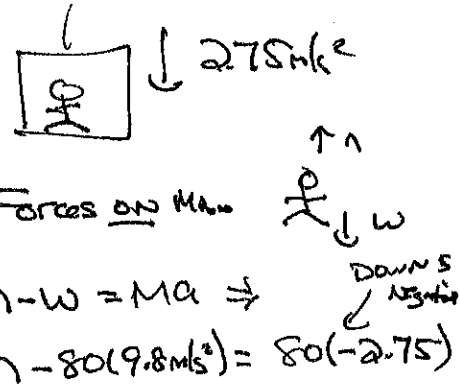 ↓ 2.75m/s²
↑ n
Forces ON Man
↓ w
Down is
Negative
n - w = Ma ⇒
n - 80(9.8m/s²) = 80(-2.75)